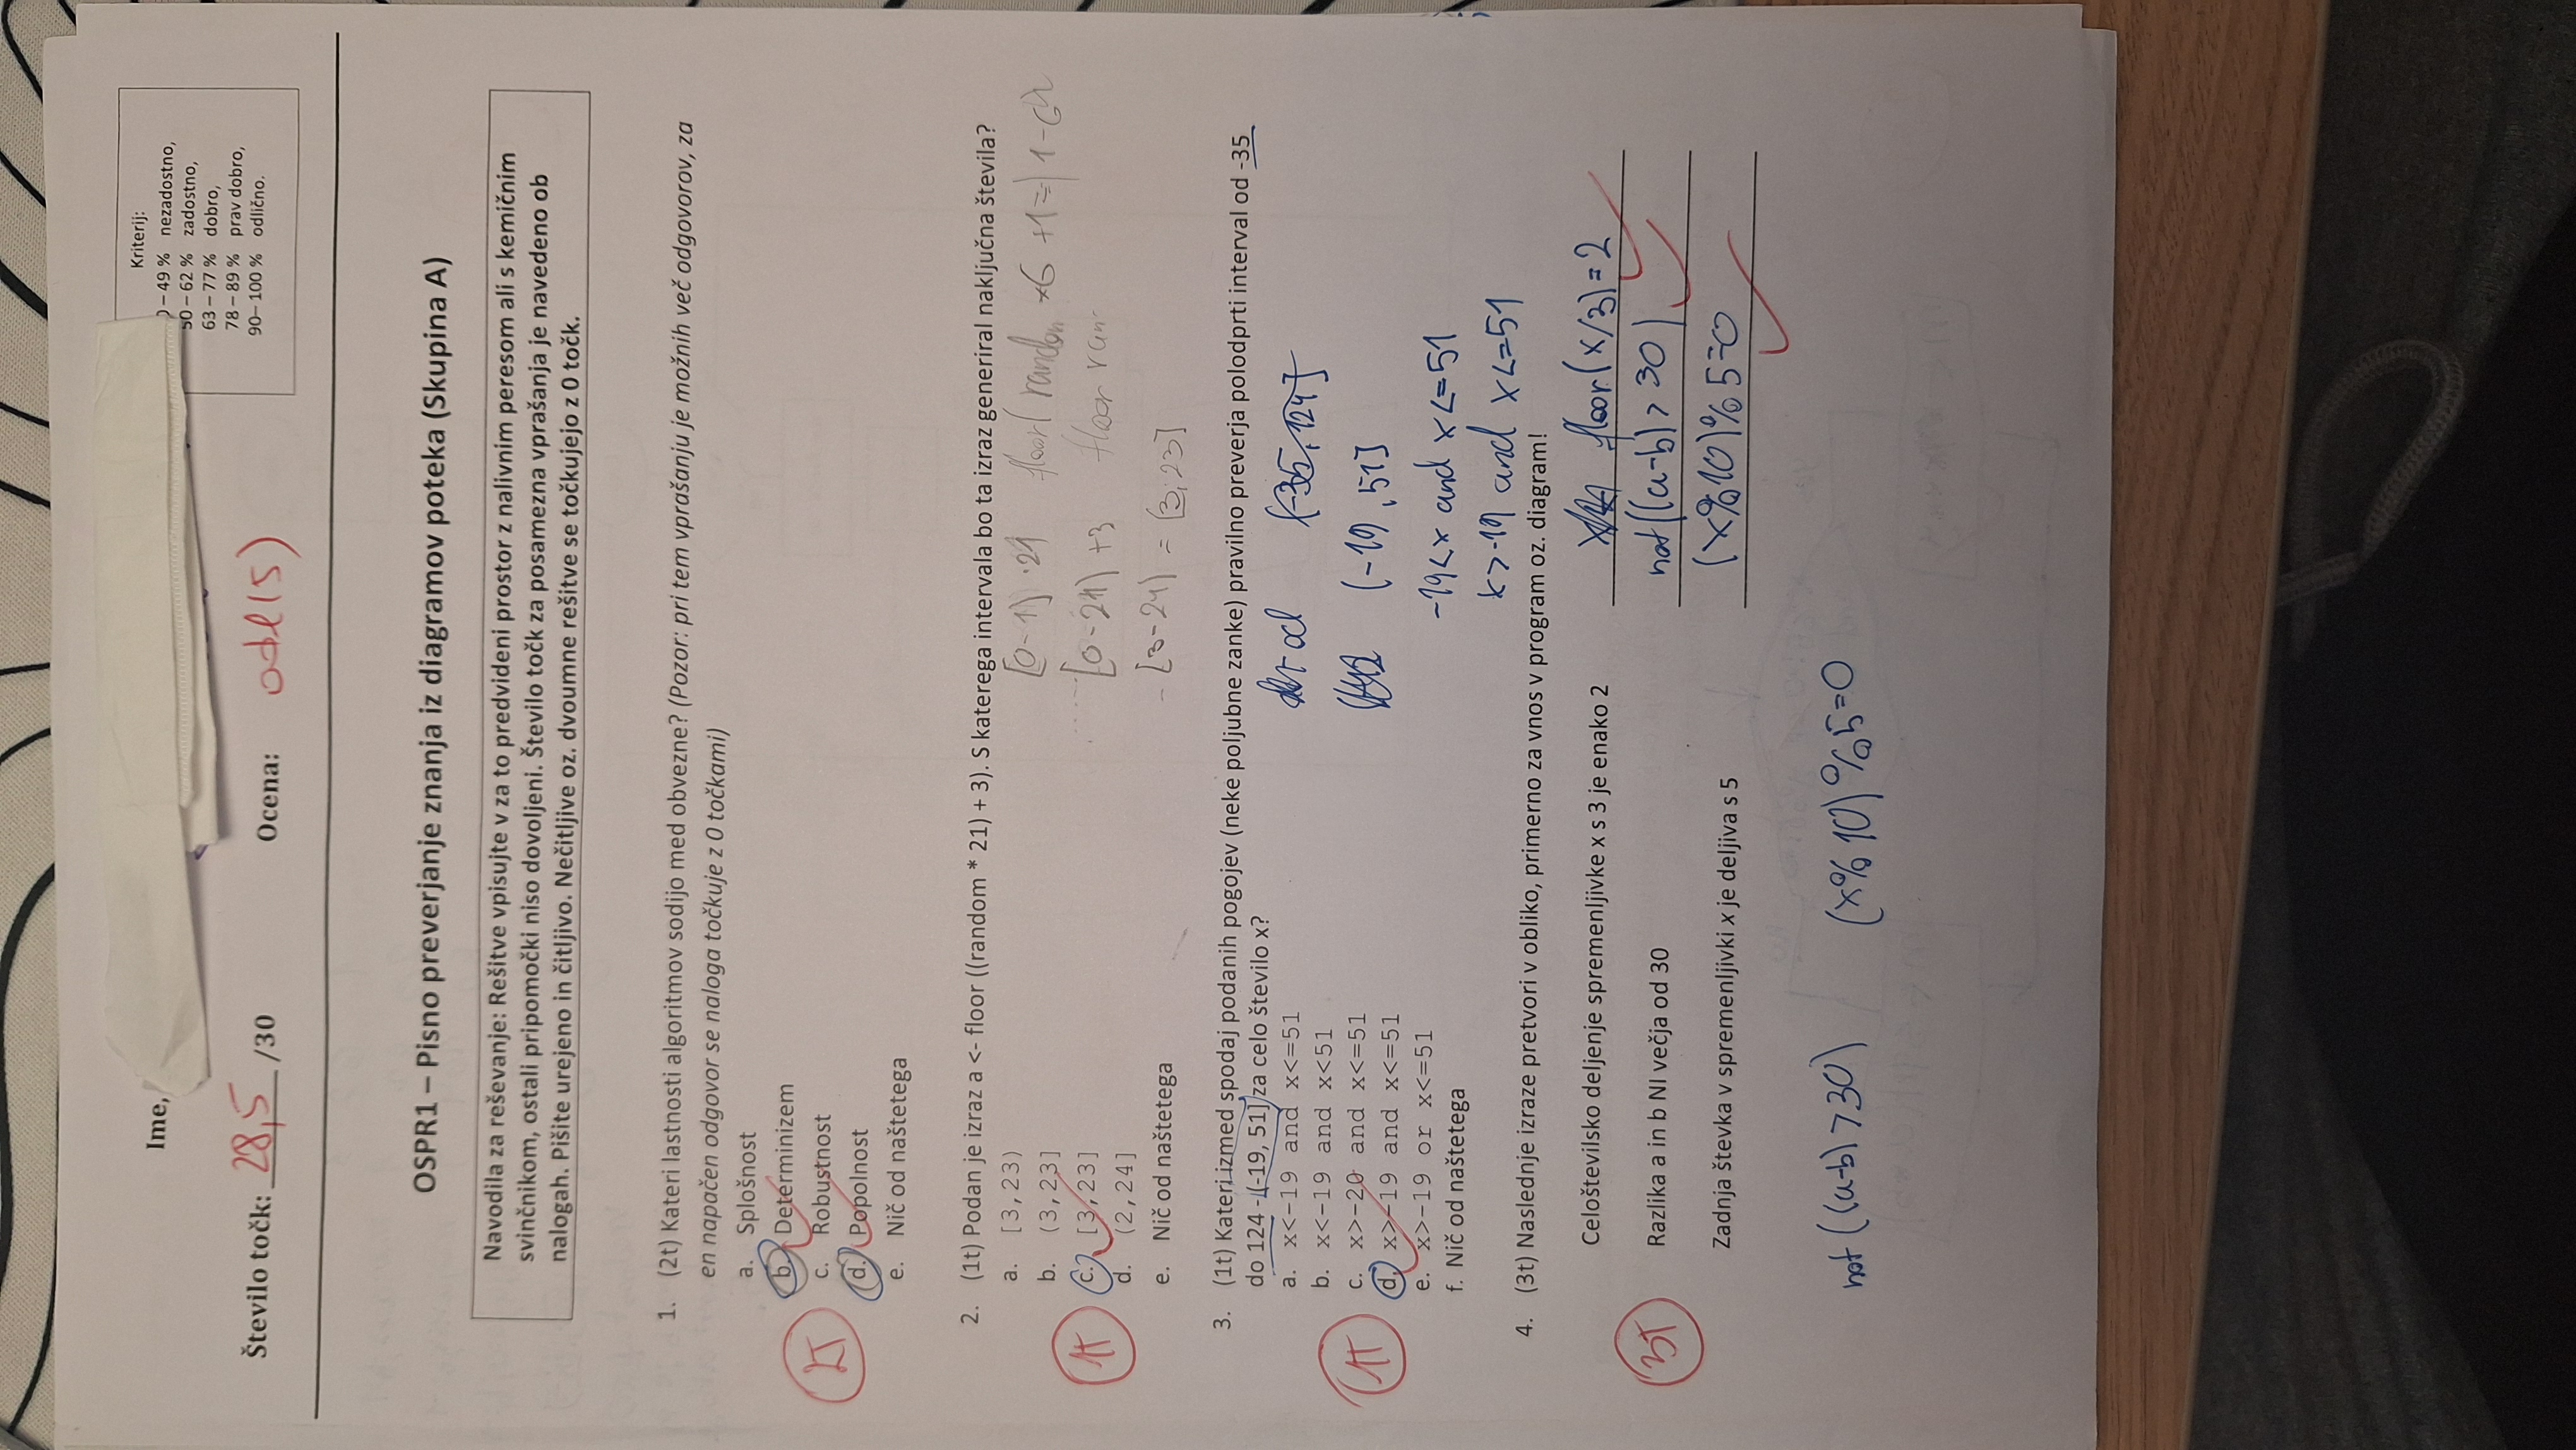 Ime,
Kriterij:
– 49 % nezadostno,
50 – 62 % zadostno,
63 – 77 % dobro,
78 – 89 % prav dobro,
90– 100 % odlično.
Število točk: 28,5 /30
Ocena: odl(5)
OSPR1 – Pisno preverjanje znanja iz diagramov poteka (Skupina A)
Navodila za reševanje: Rešitve vpisujte v za to predvideni prostor z nalivnim peresom ali s kemičnim
svinčnikom, ostali pripomočki niso dovoljeni. Število točk za posamezna vprašanja je navedeno ob
nalogah. Pišite urejeno in čitljivo. Nečitljive oz. dvoumne rešitve se točkujejo z 0 točk.
1. (2t) Kateri lastnosti algoritmov sodijo med obvezne? (Pozor: pri tem vprašanju je možnih več odgovorov, za
en napačen odgovor se naloga točkuje z 0 točkami)
a. Splošnost
b. Determinizem
2T
c. Robustnost
d. Popolnost
e. Nič od naštetega
2. (1t) Podan je izraz a <- floor ((random * 21) + 3). S katerega intervala bo ta izraz generiral naključna števila?
a. [3,23)
[0-1) ·21 floor( random *6 +1=
b. (3,23]
1T
c. [3,23]
[0-21) +3 floor ran
d. (2,24]
e. Nič od naštetega
[3-24) = [3,23]
3. (1t) Kateri izmed spodaj podanih pogojev (neke poljubne zanke) pravilno preverja polodprti interval od -35
do 124 - (-19, 51] za celo število x?
a. x<-19 and x<=51
od (-35, 124]
b. x<-19 and x<51
1T
c. x>-20 and x<=51
(-19, 51]
d. x>-19 and x<=51
e. x>-19 or x<=51
-19<x and x<=51
f. Nič od naštetega
x>-19 and x<=51
4. (3t) Naslednje izraze pretvori v obliko, primerno za vnos v program oz. diagram!
Celoštevilsko deljenje spremenljivke x s 3 je enako 2 floor(x/3)=2
3T
Razlika a in b NI večja od 30 not((a-b)>30)
Zadnja števka v spremenljivki x je deljiva s 5 (x%10)%5=0
not((a-b)>30) (x%10)%5=0